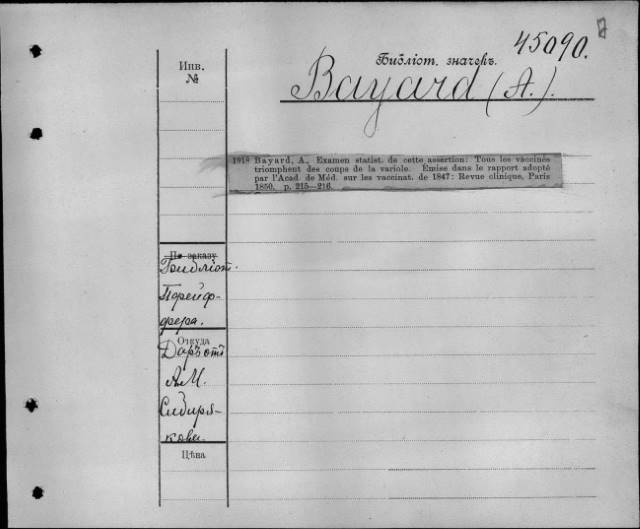 45090.
Библіот. значекъ.
Bayard (A.).
Инв.
№
1918 Bayard, A., Examen statist. de cette assertion: Tous les vaccinés
triomphent des coups de la variole. Émise dans le rapport adopté
par l'Acad. de Méd. sur les vaccinat. de 1847: Revue clinique, Paris
1850. p. 215—216.
По заказу
Библіот.
Пфрейф-
фера.
Откуда
Даръ отъ
А.М.
Сибиря-
кова.
Цѣна